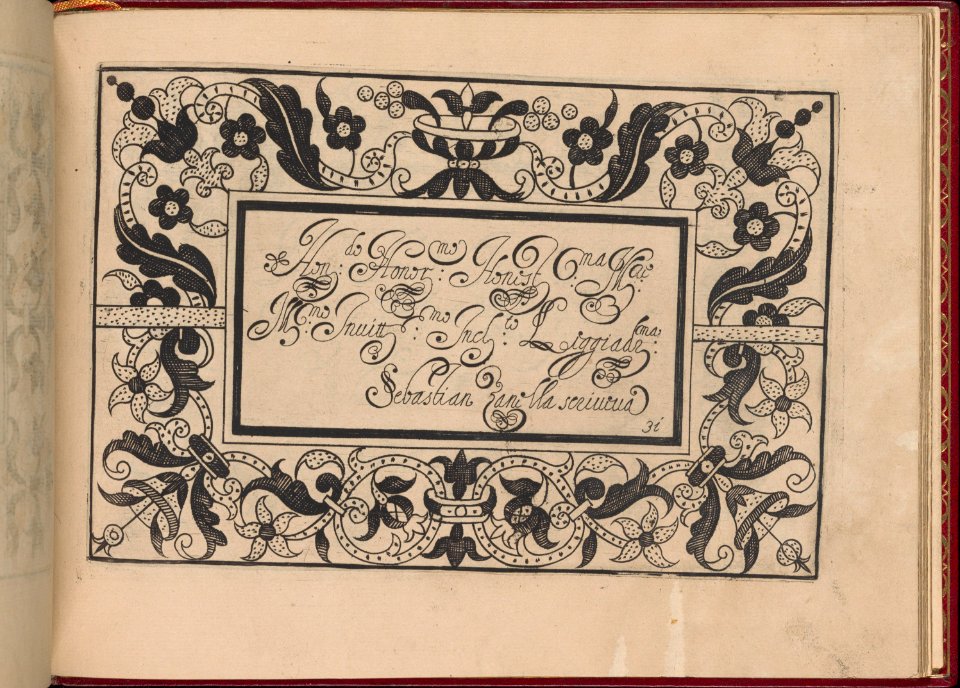 Hon:do Honor:mo Honist:ma
M:mo Invitt:mo Incl:to Leggiade:ma
Sebastian Zanella scriveva
31